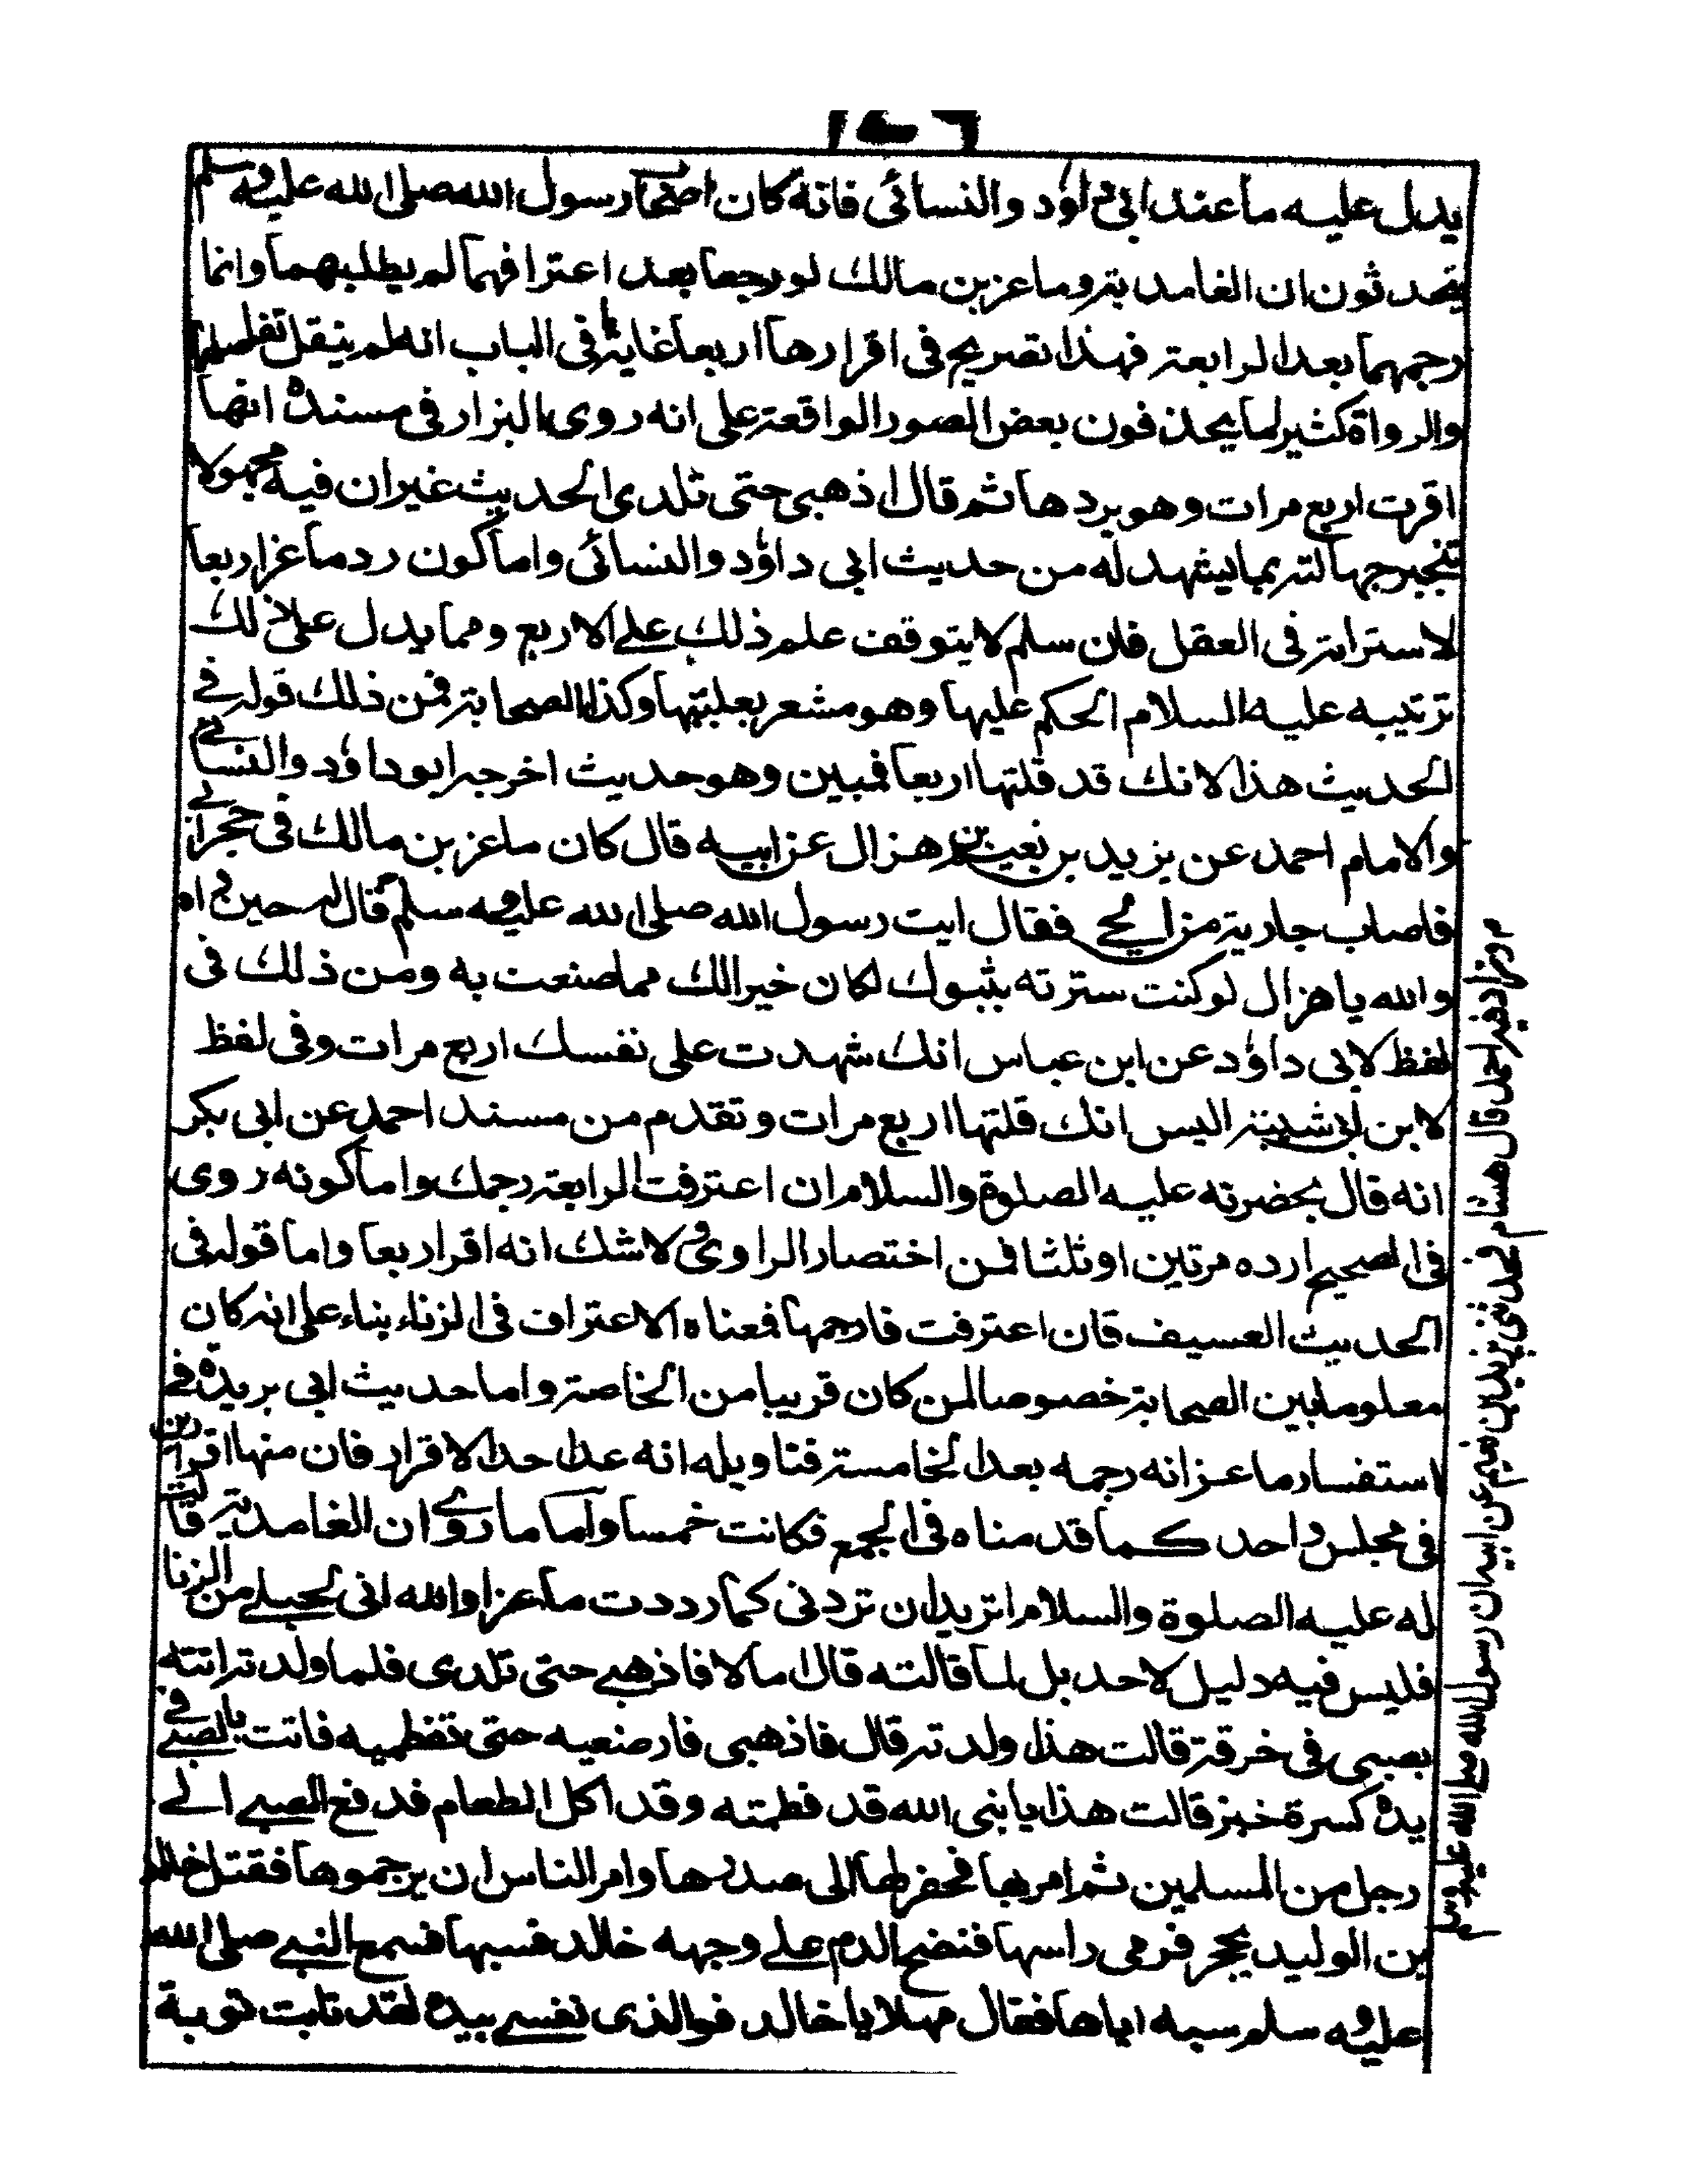 يدل عليه ما عند ابى داؤد والنسائى فانه كان اصحاب رسول الله صلى الله عليه وسلم
يتحدثون ان الغامدية وماعز بن مالك لو رجعا بعد اعترافهما لم يطلبهما وانما
رجمهما بعد الرابعة فهذا تصريح فى اقرارها اربعا غاية ما فى الباب انه لم ينقل تفاصيلها
والرواة كثيرا ما يحذفون بعض الصور الواقعة على انه روى البزار فى مسنده انها
اقرت اربع مرات وهو يردها ثم قال اذهبى حتى تلدى الحديث غير ان فيه مجهولا
تنجبر جهالته بما يشهد له من حديث ابى داؤد والنسائى واما كون رد ماعز اربعا
لاسترابته فى العقل فان سلم لا يتوقف علم ذلك على الاربع ومما يدل على ذلك
ترتيبه عليه السلام الحكم عليها وهو مشعر بعليتها وكذا الصحابة فمن ذلك قوله فى
الحديث هذا لانك قد قلتها اربعا فمبين وهو حديث اخرجه ابو داؤد والنسائى
والامام احمد عن يزيد بن نعيم بن هزال عن ابيه قال كان ماعز بن مالك فى حجر ابى
فاصاب جارية من الحى فقال ايت رسول الله صلى الله عليه وسلم قال له حين راه
والله يا هزال لو كنت سترته بثوبك لكان خيرا لك مما صنعت به ومن ذلك فى
لفظ لابى داؤد عن ابن عباس انك شهدت على نفسك اربع مرات وفى لفظ
لابن ابى شيبة اليس انك قلتها اربع مرات وتقدم من مسند احمد عن ابى بكر
انه قال بحضرته عليه الصلوة والسلام ان اعترفت الرابعة رجمك واما كونه روى
فى الصحيح رده مرتين او ثلثا فمن اختصار الراوى ولا شك انه اقر اربعا واما قوله فى
الحديث العسيف فان اعترفت فارجمها فمعناه الاعتراف فى الزناء بناء على انه كان
معلوما بين الصحابة خصوصا لمن كان قريبا من الخاصة واما حديث ابى بريدة فى
استفسار ماعز انه رجمه بعد الخامسة فتاويله انه عد احد الاقرار فان منها اقرارين
فى مجلس واحد كما قدمناه فى الجمع فكانت خمسا واما ما روى ان الغامدية قالت
له عليه الصلوة والسلام اتريد ان تردنى كما رددت ماعزا والله انى لحبلى من الزنا
فليس فيه دليل لاحد بل لما قالته قال اما لا فاذهبى حتى تلدى فلما ولدته اتته
بصبى فى خرقة قالت هذا ولدته قال فاذهبى فارضعيه حتى تفطميه فاتت بالصبى فى
يده كسرة خبز قالت هذا يا نبى الله قد فطمته وقد اكل الطعام فدفع الصبى الى
رجل من المسلمين ثم امر بها فحفر لها الى صدرها وامر الناس ان يرجموها فقتل خالد
بن الوليد بحجر فرمى راسها فنضح الدم على وجهه خالد فسبها فسمع النبى صلى الله
عليه وسلم سبه اياها فقال مهلا يا خالد فوالذى نفسى بيده لقد تابت توبة
وزاد فيه احمد قال هشام فحدثنى يزيد بن نعيم عن ابيه ان رسول الله صلى الله عليه وسلم